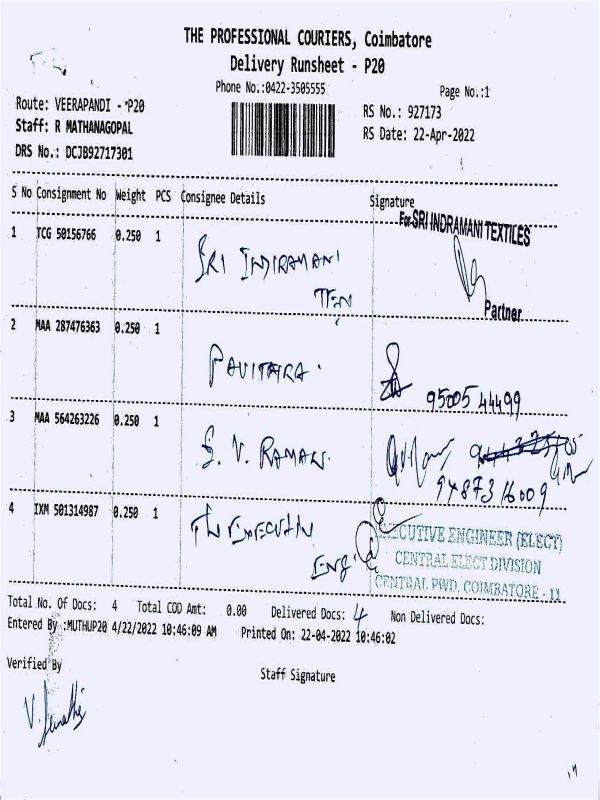 THE PROFESSIONAL COURIERS, Coimbatore
Delivery Runsheet - P20
Phone No.:0422-3505555
Page No.:1
Route: VEERAPANDI - P20
RS No.: 927173
Staff: R MATHANAGOPAL
RS Date: 22-Apr-2022
DRS No.: DCJB92717301
S No Consignment No Weight PCS Consignee Details Signature
For SRI INDRAMANI TEXTILES
1 TCG 50156766 0.250 1
SRI INDIRAMANI
Partner
2 MAA 287476363 0.250 1
PAVITHRA.
95005 44499
3 MAA 564263226 0.250 1
S. V. RAMAN.
94873 16009
4 IXM 501314987 0.250 1
EXECUTIVE ENGINEER (ELECT)
CENTRAL ELECT DIVISION
ENG
CENTRAL PWD. COIMBATORE - 11
Total No. Of Docs: 4 Total COD Amt: 0.00 Delivered Docs: 4 Non Delivered Docs:
Entered By :MUTHUP20 4/22/2022 10:46:09 AM Printed On: 22-04-2022 10:46:02
Verified By
Staff Signature